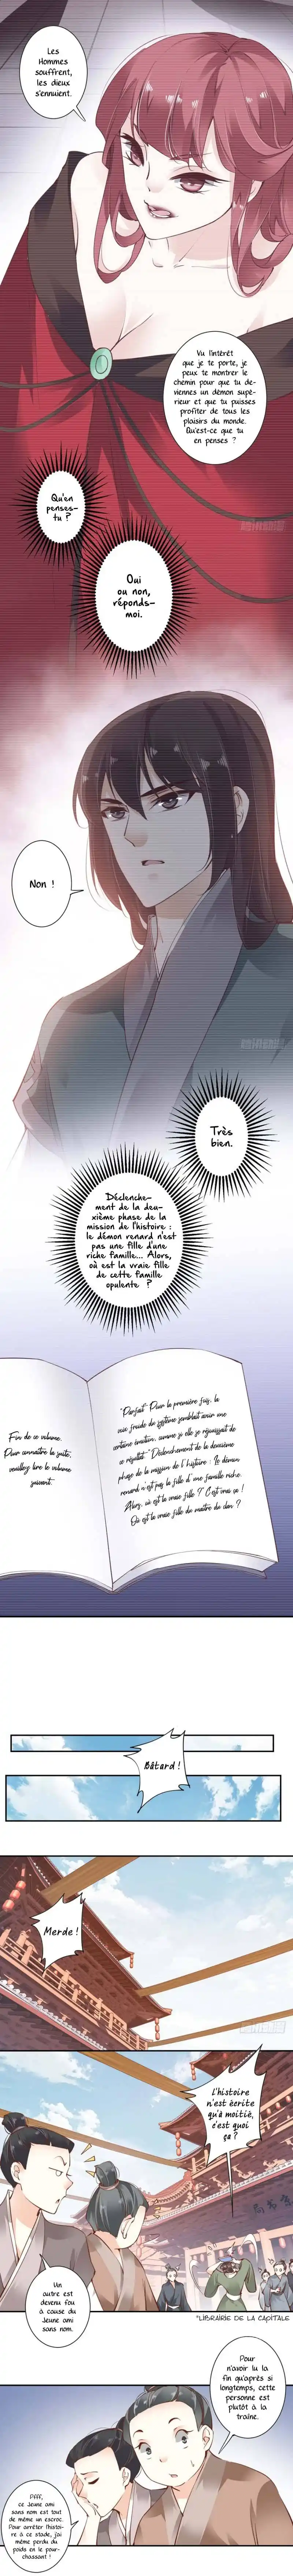 Les
Hommes
souffrent,
les dieux
s'ennuient.
Vu l'intérêt
que je te porte, je
peux te montrer le
chemin pour que tu de-
viennes un démon supé-
rieur et que tu puisses
profiter de tous les
plaisirs du monde.
Qu'est-ce que tu
en penses ?
Qu'en
penses-
tu ?
Oui
ou non,
réponds-
moi.
Non !
Très
bien.
Déclenche-
ment de la deu-
xième phase de la
mission de l'histoire :
le démon renard n'est
pas une fille d'une
riche famille... Alors,
où est la vraie fille
de cette famille
opulente ?
Fin de ce volume.
Pour connaître la suite,
veuillez lire le volume
suivant.
"Parfait" Pour la première fois, la
voix froide du système semblait avoir une
certaine émotion, comme si elle se réjouissait de
ce résultat. "Déclenchement de la deuxième
phase de la mission de l'histoire : Le démon
renard n'est pas la fille d'une famille riche.
Alors, où est la vraie fille ?" C'est vrai ça !
Où est la vraie fille du maître du clan ?
Bâtard !
Merde !
L'histoire
n'est écrite
qu'à moitié,
c'est quoi
ça ?
Un
autre est
devenu fou
à cause du
Jeune ami
sans nom.
*LIBRAIRIE DE LA CAPITALE
Pour
n'avoir lu la
fin qu'après si
longtemps, cette
personne est
plutôt à la
traîne.
Pfff,
ce Jeune ami
sans nom est tout
de même un escroc.
Pour arrêter l'histoi-
re à ce stade, j'ai
même perdu du
poids en le pour-
chassant !